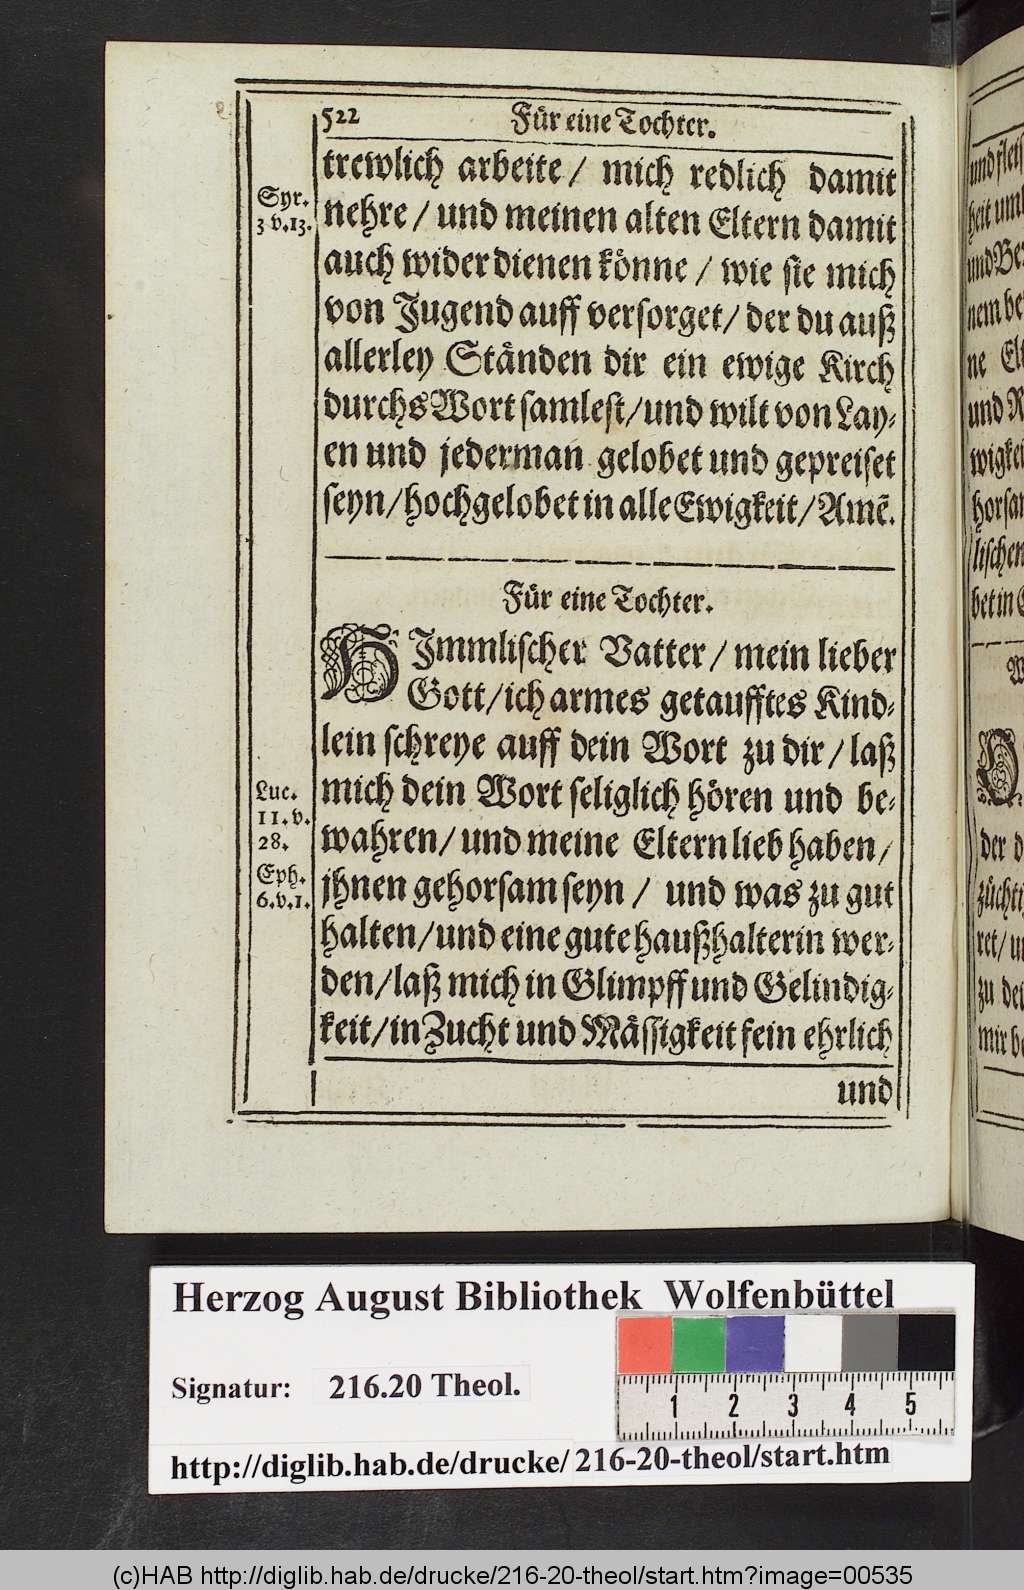 522 Für eine Tochter.
trewlich arbeite / mich redlich damit
Syr.
3 v.13.
nehre / und meinen alten Eltern damit
auch wider dienen könne / wie sie mich
von Jugend auff versorget / der du auß
allerley Ständen dir ein ewige Kirch
durchs Wort samlest / und wilt von Lay-
en und jederman gelobet und gepreiset
seyn / hochgelobet in alle Ewigkeit / Amẽ.
Für eine Tochter.
HImmlischer Vatter / mein lieber
Gott / ich armes getaufftes Kind-
lein schreye auff dein Wort zu dir / laß
Luc.
11. v.
28.
mich dein Wort seliglich hören und be-
wahren / und meine Eltern lieb haben /
Eph.
6. v. 1.
jhnen gehorsam seyn / und was zu gut
halten / und eine gute haußhalterin wer-
den / laß mich in Glimpff und Gelindig-
keit / in Zucht und Mässigkeit fein ehrlich
und
Herzog August Bibliothek Wolfenbüttel
Signatur: 216.20 Theol.
1 2 3 4 5
http://diglib.hab.de/drucke/ 216-20-theol/start.htm
(c)HAB http://diglib.hab.de/drucke/216-20-theol/start.htm?image=00535